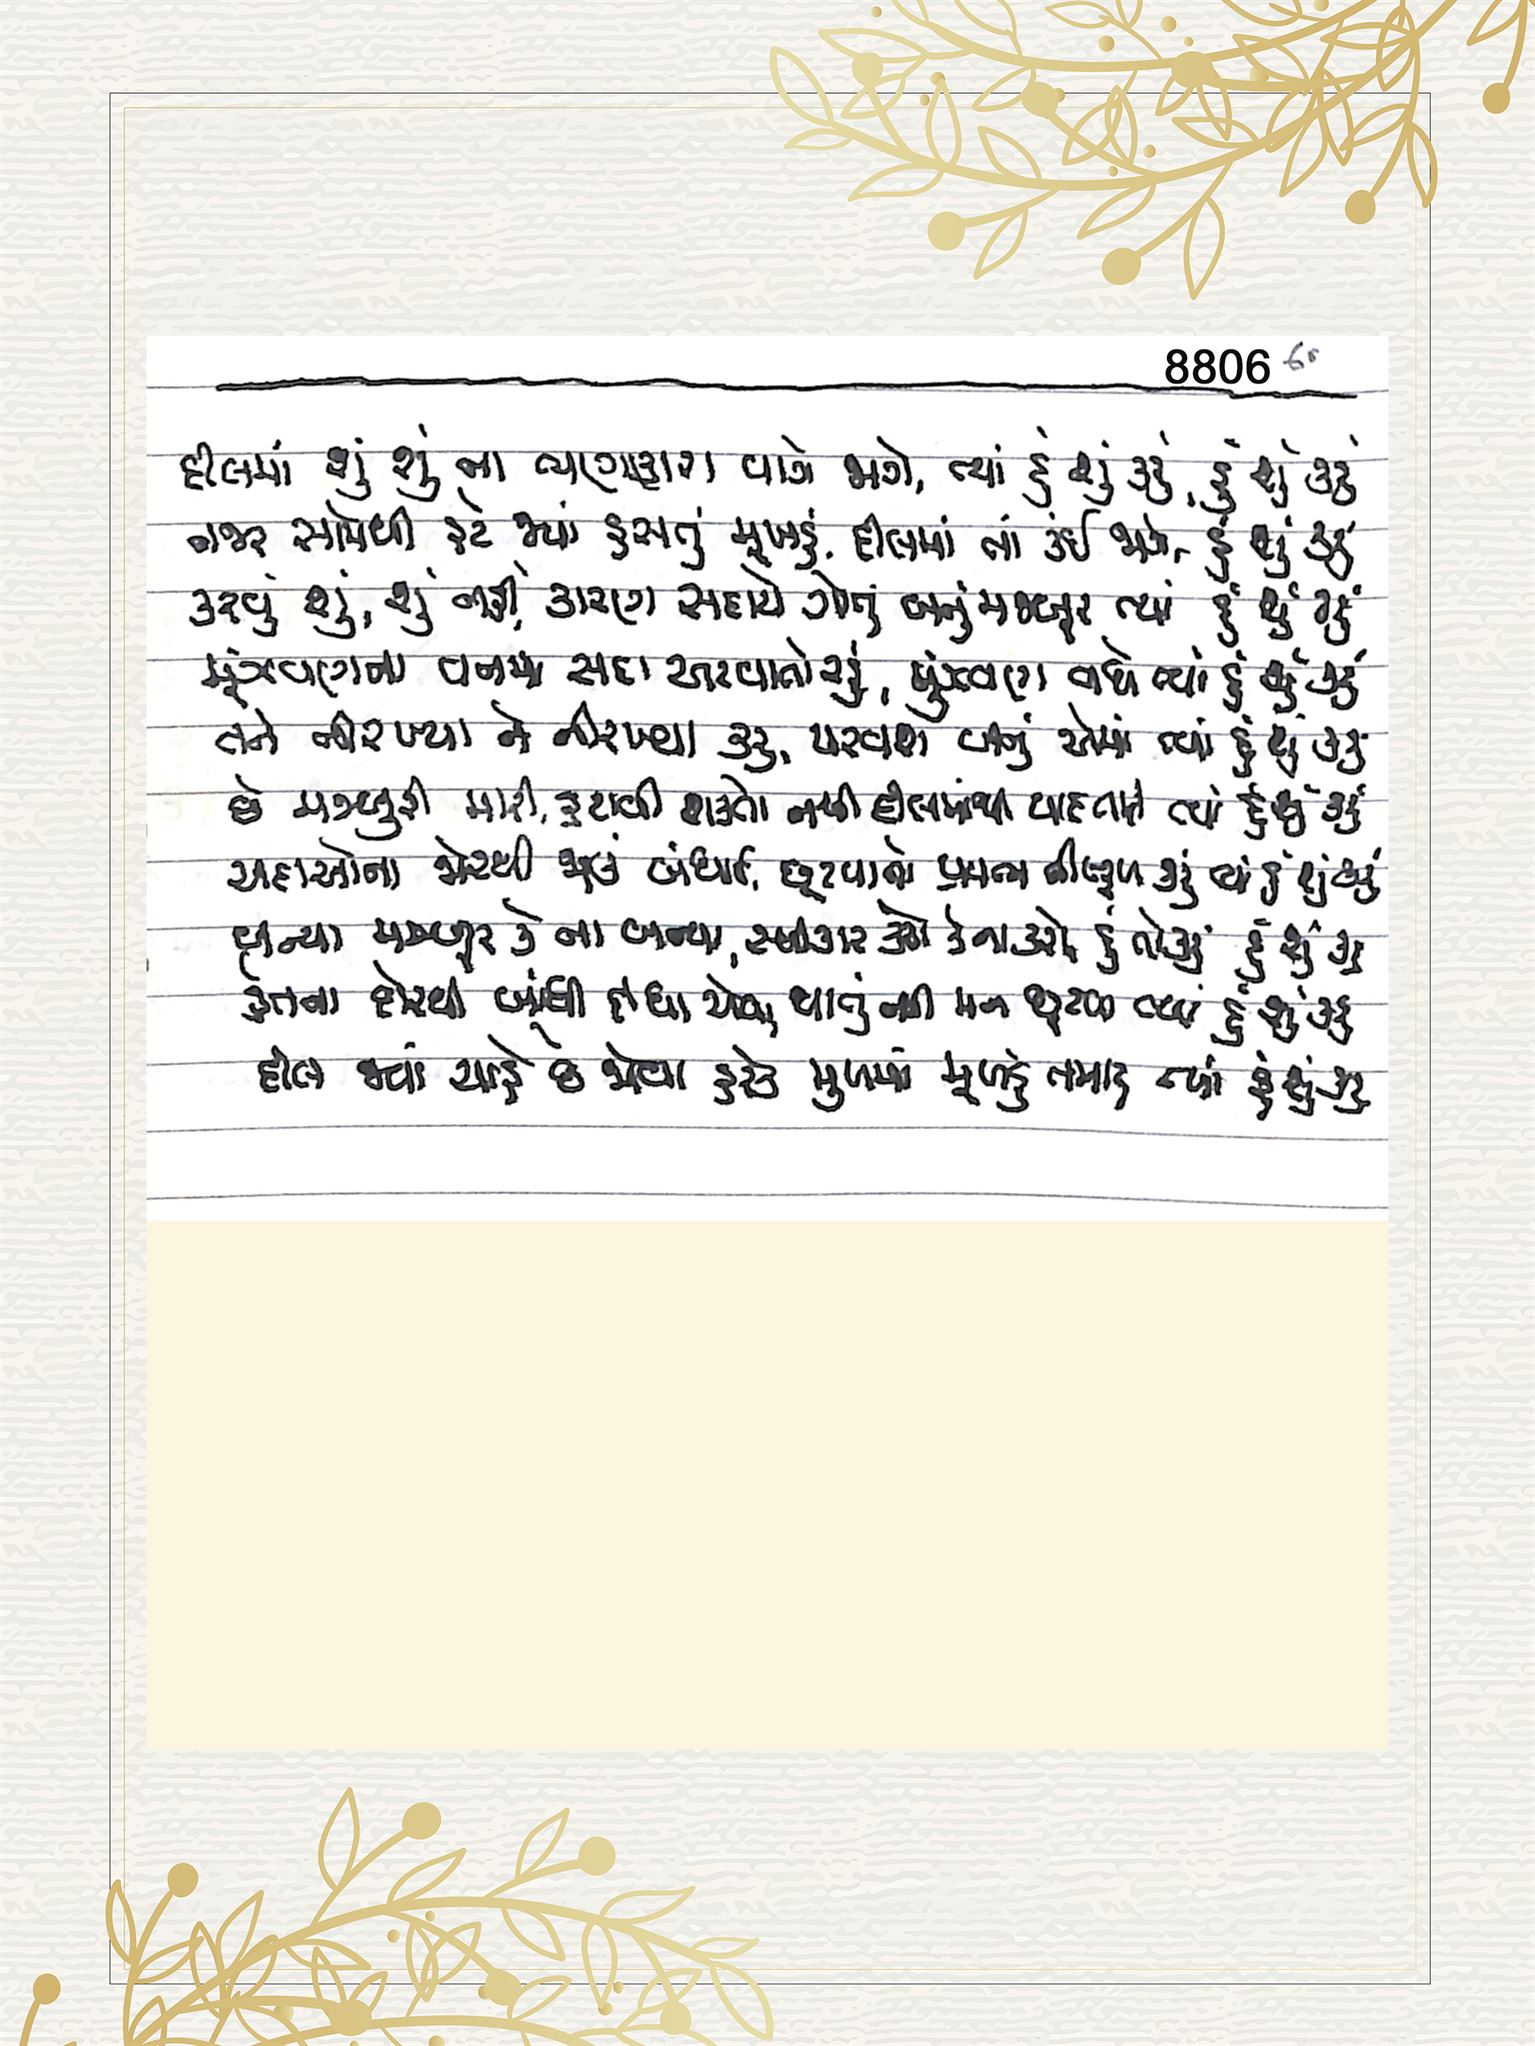 8806
દીલમાં શું શું ના વ્યણાકારા વાગે જાગે, ત્યાં હું શું કરું, હું શું કરું
નજર સામેથી હટે જ્યાં હસતું મૂખડું, દીલમાં તાં કંઈ જાગે, હું શું કરું
કરવું શું, શું નહીં, કારણ સદાયે ગોતું બનું મજબૂર ત્યાં હું શું કરું
મૂંઝવણના વનમાં સદા અટવાતો રહું, મુંઝવણ વધે ત્યાં હું શું કરું
તને નીરખ્યા ને નીરખ્યા કરું, પરવશ બનું એમાં ત્યાં હું શું કરું
છે મજબુરી મારી, હટાવી શકતો નથી દીલમાંથી યાદ તારી ત્યાં હું શું કરું
અદાઓના જોરથી જાઉં બંધાઈ, છૂટવાનો પ્રયત્ન નીષ્ફળ કરું ત્યાં હું શું કરું
બન્યા મજબૂર કે ના બન્યા, સ્વીકાર કરો કે ના કરો, હું તો કહું હું શું કરું
હેતના દોરથી બાંધી દીધા એવા, થાતું નથી મન છૂટવા ત્યાં હું શું કરું
દીલ જ્યાં ચાહે છે જોવા હરેક મુખમાં મૂખડું તમારું ત્યાં હું શું કરું